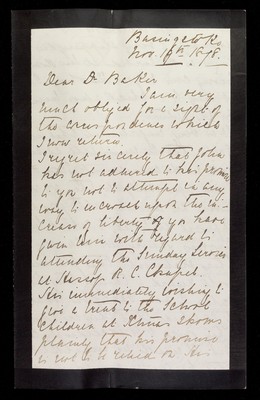 Basingstoke
Nov. 18th 1878.
Dear Dr Baker
I am very
much obliged for a sight of
the correspondence which
I now return.
I regret sincerely that John
has not adhered to his promise
to you not to attempt in any
way to encroach upon the in-
crease of liberty you have
given him with regard to
attending the Sunday Services
at R. C. Chapel.
His immediately wishing to
give a treat to the School
Children at Xmas shows
plainly that his promise
is not to be relied on. His